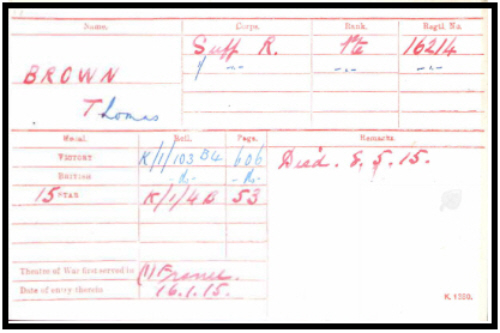 Name. Corps. Rank. Regtl. No.
Suff R. Pte 16214
BROWN " -"- -"- -"-
Thomas
Medal. Roll. Page. Remarks.
VICTORY K/1/103 B4 606 Died. 8.5.15.
BRITISH -do- -do-
15 STAR K/1/4 B 53
Theatre of War first served in (1) France.
Date of entry therein 16.1.15. K. 1380.